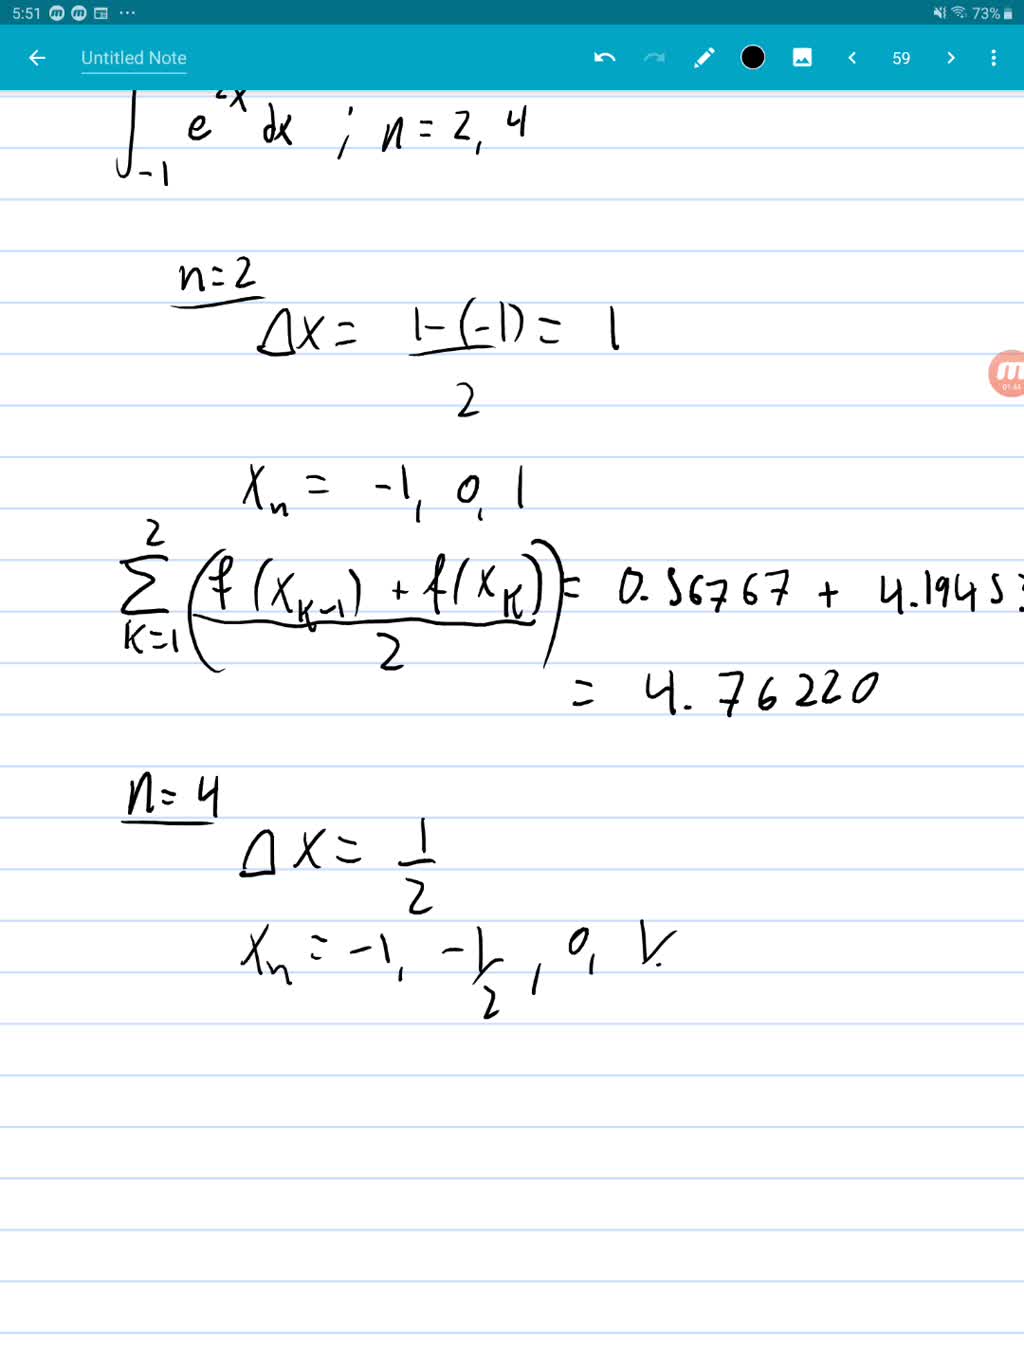 5:51 73%
Untitled Note 59
∫₋₁ e^2x dx ; n = 2, 4
n=2
Δx = (1-(-1))/2 = 1
m
01:44
xₙ = -1, 0, 1
∑_{K=1}^{2} ((f(x_{K-1}) + f(x_K))/2) = 0.56767 + 4.1945
= 4.76220
n=4
Δx = 1/2
xₙ = -1, -1/2, 0,